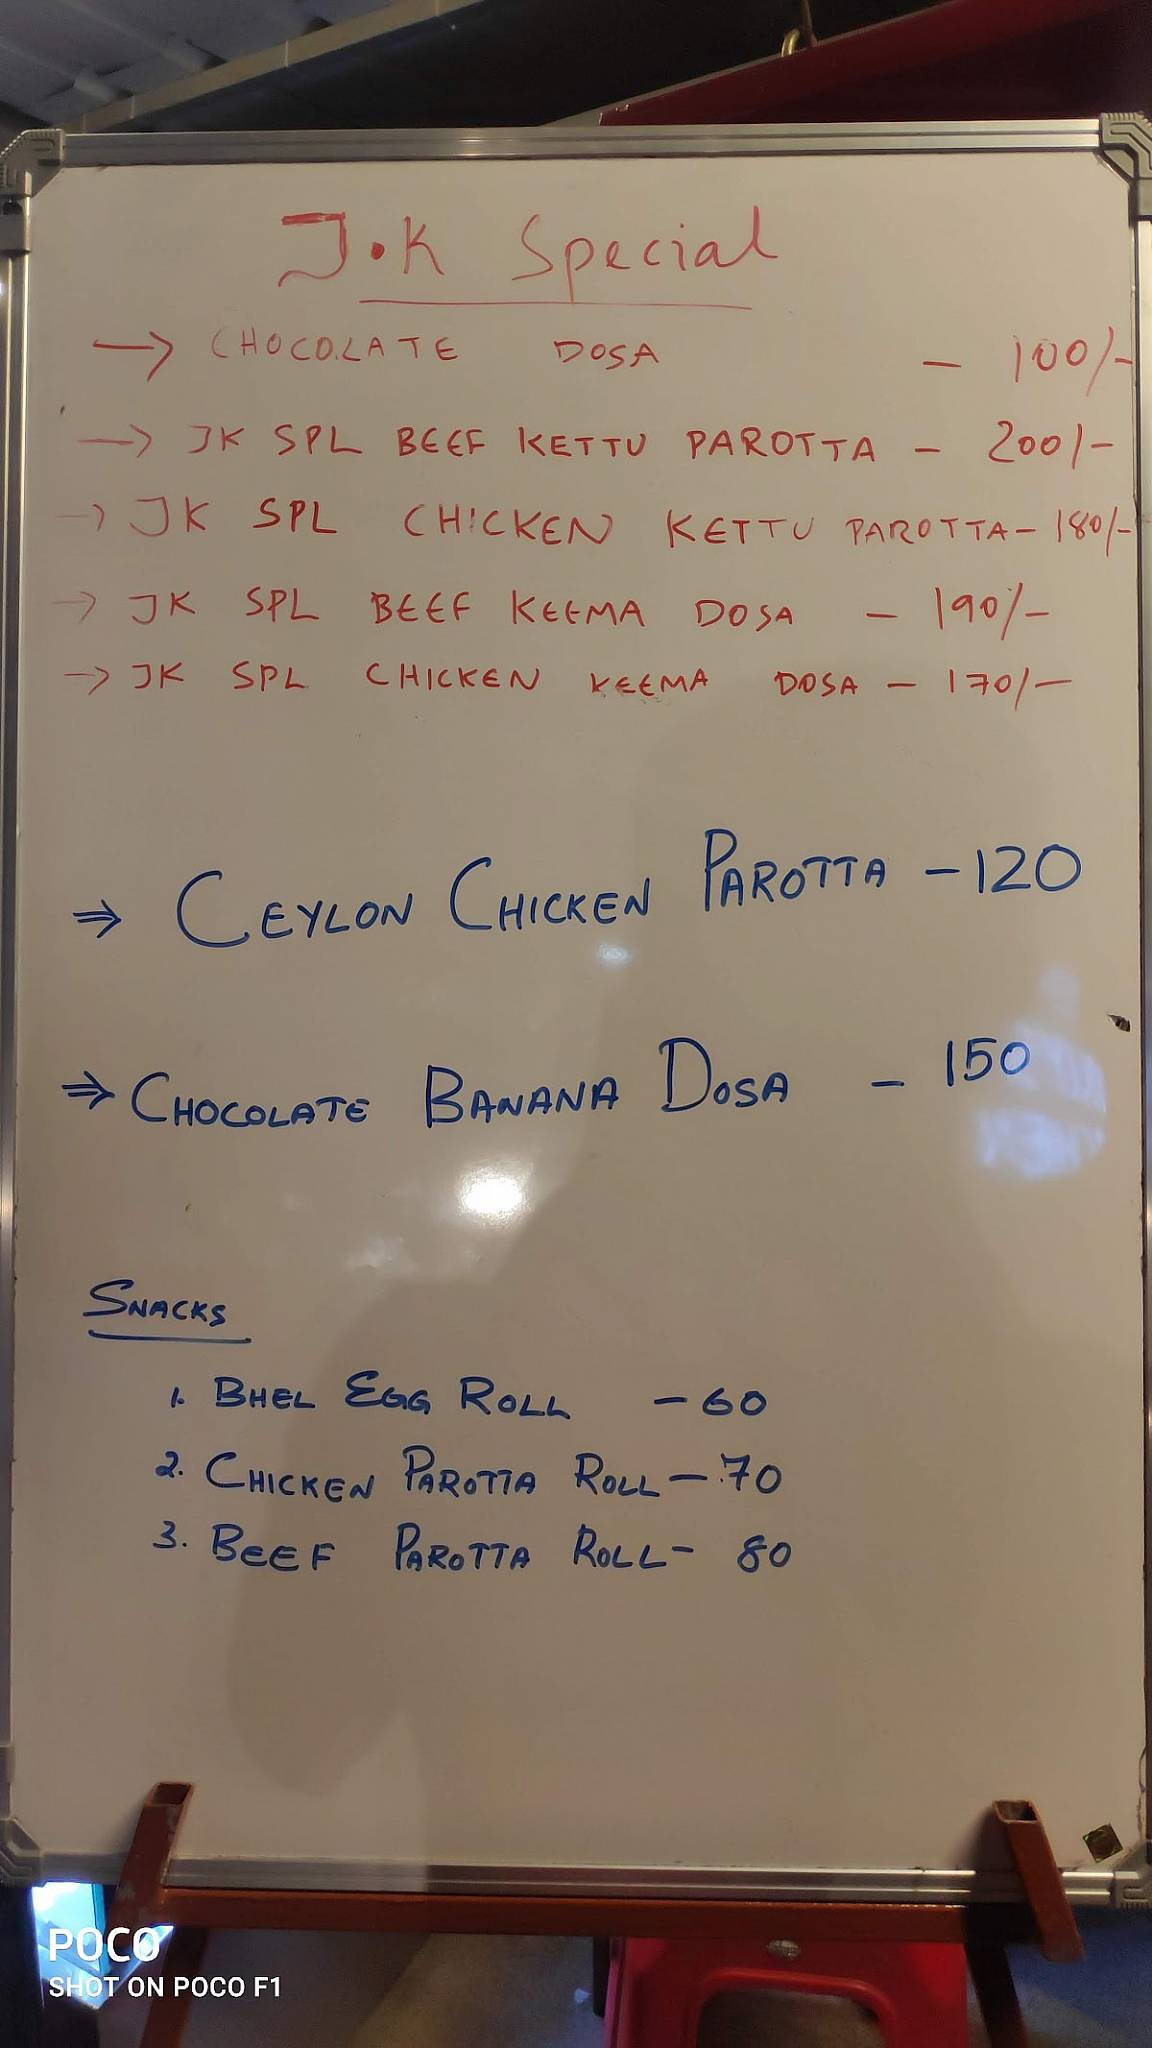 J.K Special
→ CHOCOLATE DOSA - 100/-
→ JK SPL BEEF KETTU PAROTTA - 200/-
→ JK SPL CHICKEN KETTU PAROTTA - 180/-
→ JK SPL BEEF KEEMA DOSA - 190/-
→ JK SPL CHICKEN KEEMA DOSA - 170/-
⇒ CEYLON CHICKEN PAROTTA - 120
⇒ CHOCOLATE BANANA DOSA - 150
SNACKS
1. BHEL EGG ROLL - 60
2. CHICKEN PAROTTA ROLL - 70
3. BEEF PAROTTA ROLL - 80
POCO
SHOT ON POCO F1